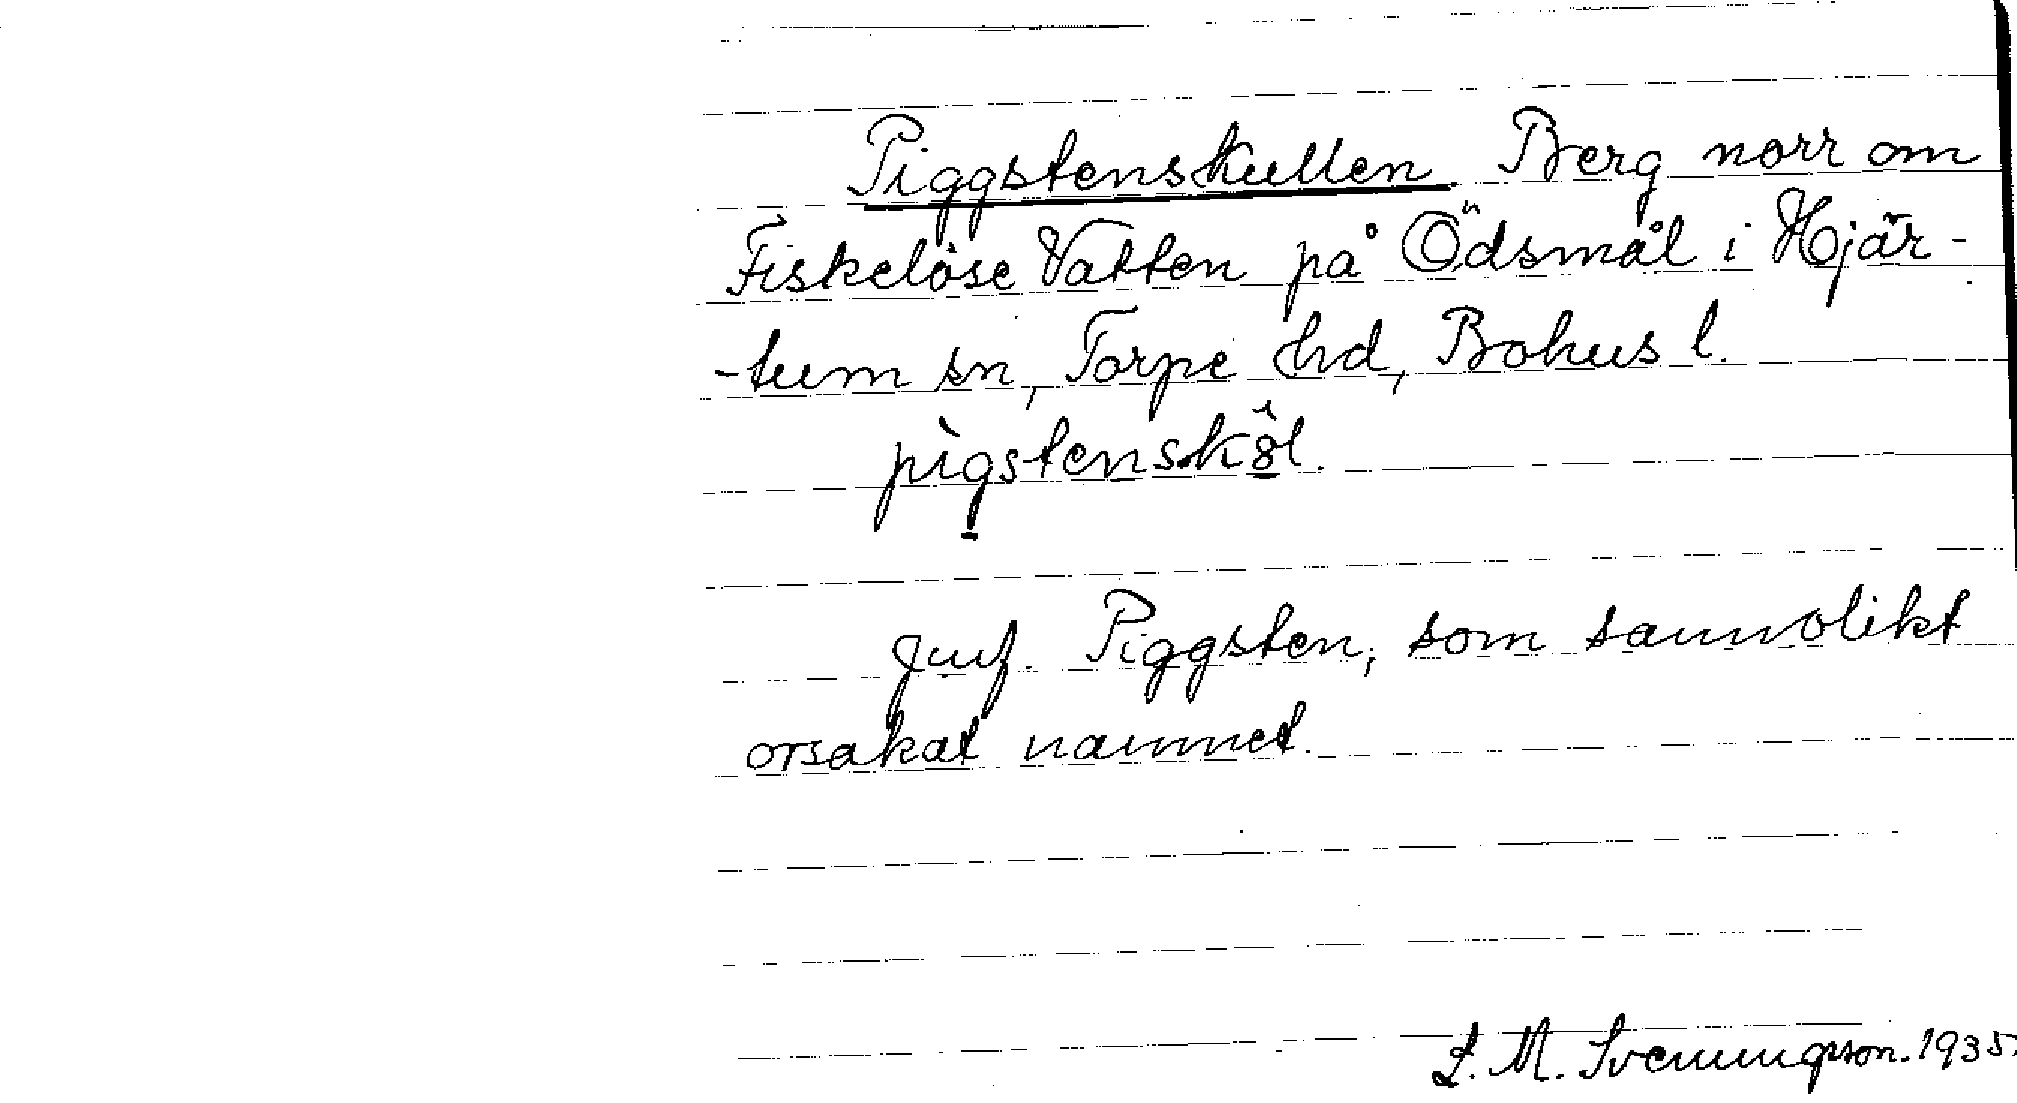 Piggstenskullen Berg norr om
Fiskelöse Vatten på Ödsmål i Hjär-
-tum sn, Torpe hd, Bohus l.
pìgstenskôl.
Jmf. Piggsten, som sannolikt
orsakat namnet.
L. M. Svenungsson. 1935.